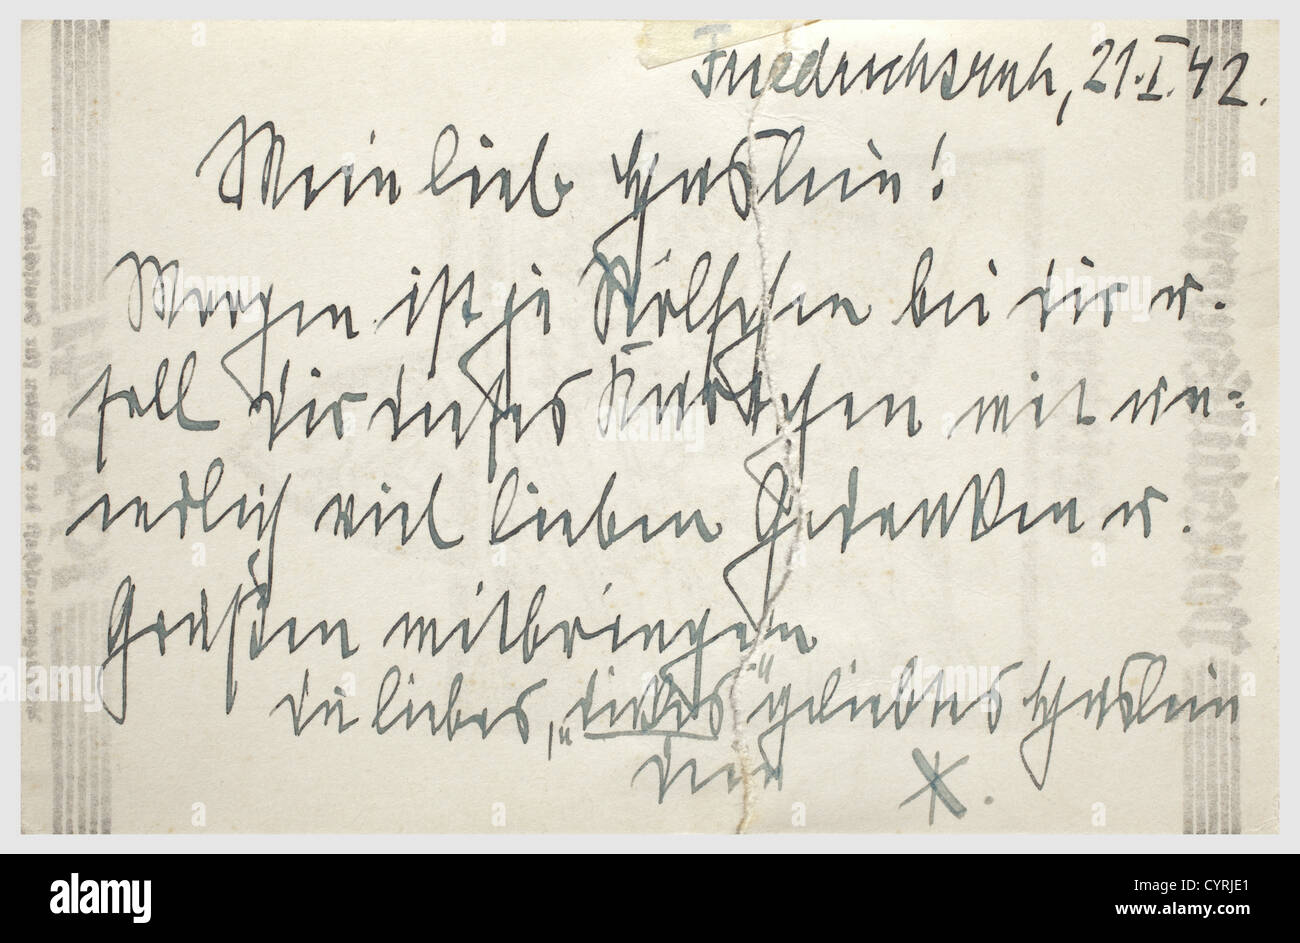 Friedrichsruh, 21.I.42.
Mein lieb Haslein!
Morgen ist ja Rölfchen bei Dir u.
soll Dir dieses Kärtchen mit un=
endlich viel lieben Gedanken u.
Grüßen mitbringen
Du liebes, „dickes" geliebtes Haslein
Dein X.
alamy
Image ID: CYRJE1
www.alamy.com